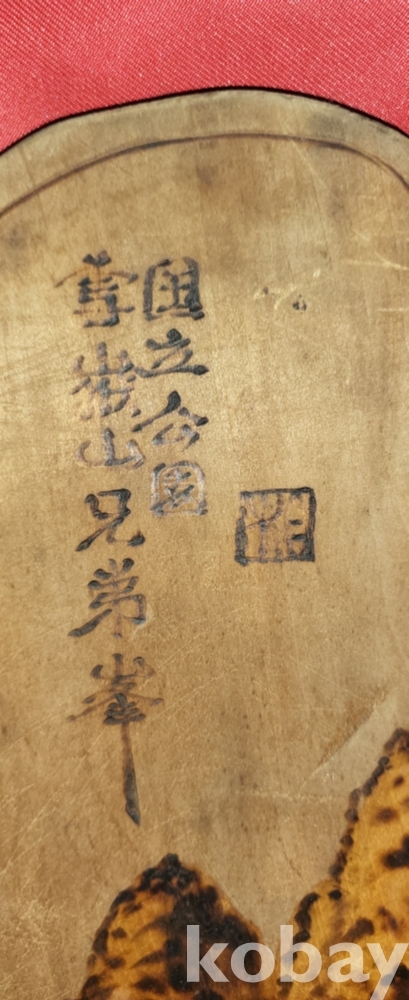 国立公園
雪嶽山兄弟峯
kobay